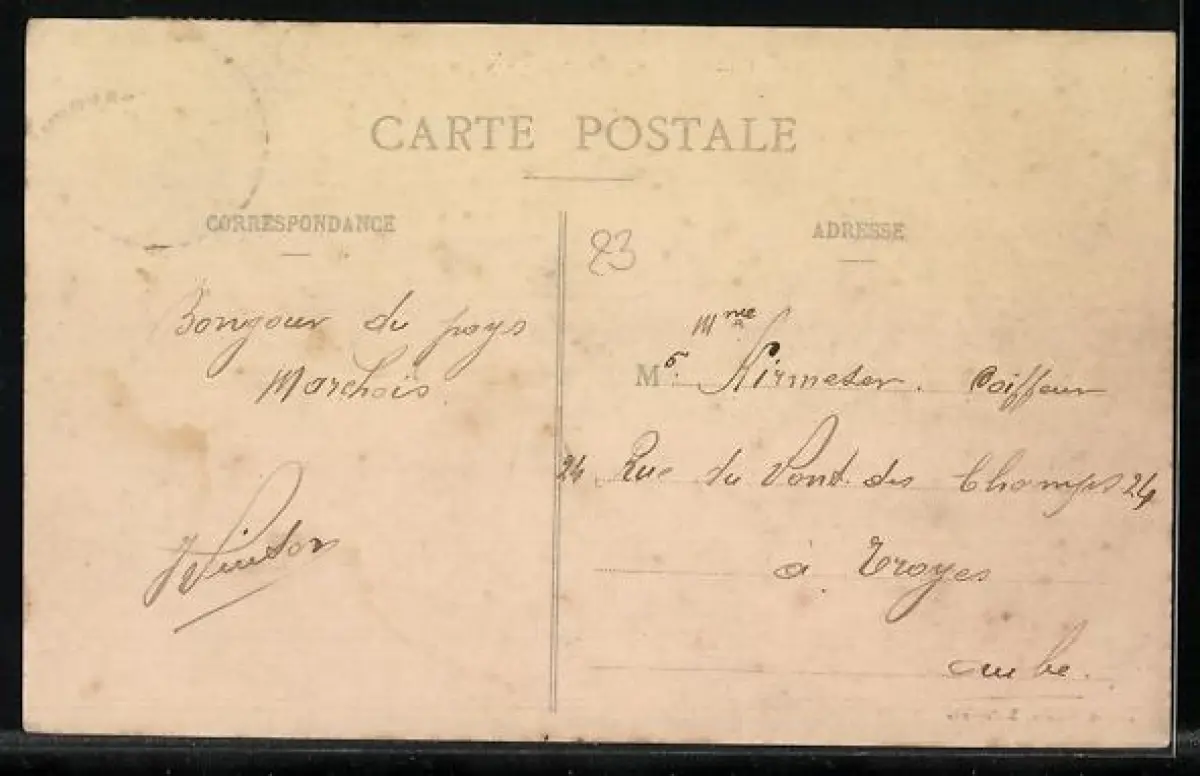 CARTE POSTALE
CORRESPONDANCE
Bonjour du pays
Marchois
Winter
ADRESSE
23
Mme
Mr. Kirmeser. Coiffeur
24 Rue du Pont des Champs 24
à Troyes
aube.